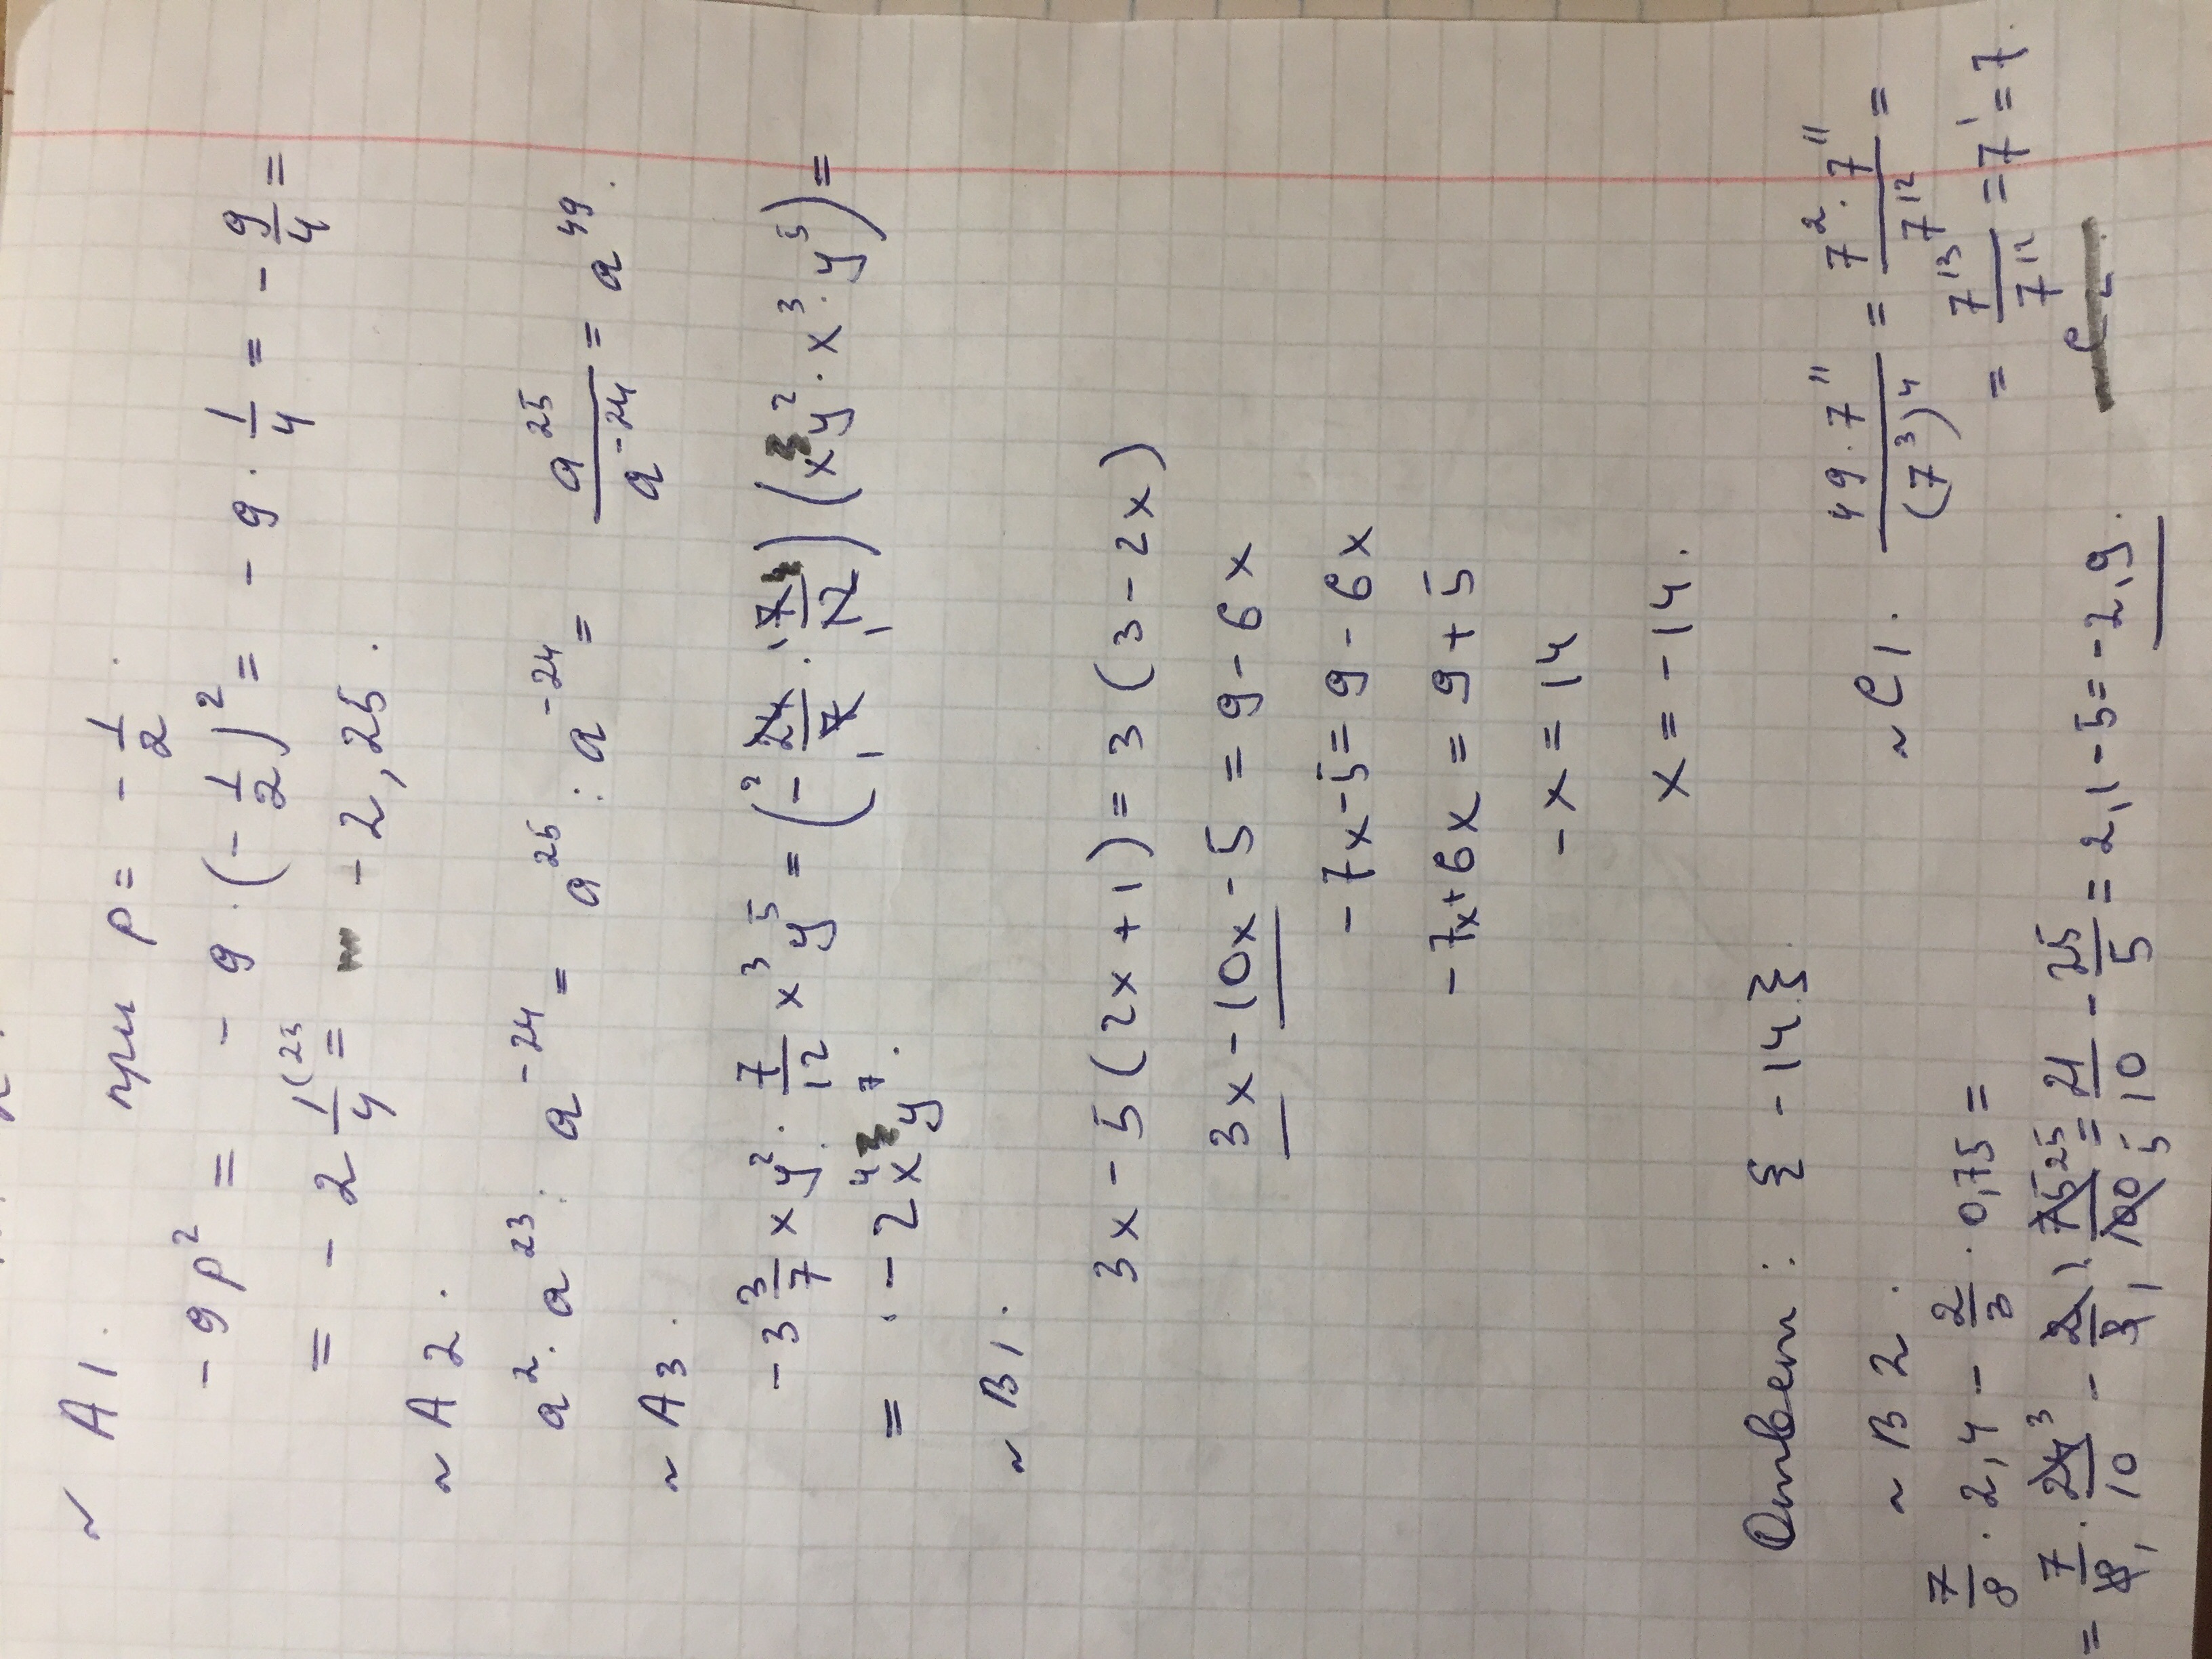 ~ A 1.
при p = - 1/2.
- 9p² = - 9 · (- 1/2)² = - 9 · 1/4 = - 9/4 =
= - 2 1/4 (25 = - 2,25.
~ A 2.
a² · a²³ : a⁻²⁴ = a²⁵ : a⁻²⁴ = a²⁵/a⁻²⁴ = a⁴⁹.
~ A 3.
- 3 3/7 x y² · 7/12 x³ y⁵ = (- 24/7 · 7/12)(x y² · x³ · y⁵) =
= - 2x⁴ y⁷.
~ B 1.
3x - 5 (2x + 1) = 3 (3 - 2x)
3x - 10x - 5 = 9 - 6x
- 7x - 5 = 9 - 6x
- 7x + 6x = 9 + 5
- x = 14
x = - 14.
Ответ : { - 14 }.
~ B 2.
7/8 · 2,4 - 2/3 · 0,75 =
= 7/8 · 24/10 - 2/3 · 75/100 = 21/10 - 25/5 = 2,1 - 5 = - 2,9.
~ C 1.
49 · 7¹¹/(7³)⁴ = 7² · 7¹¹/7¹² =
= 7¹³/7¹² = 7¹ = 7.